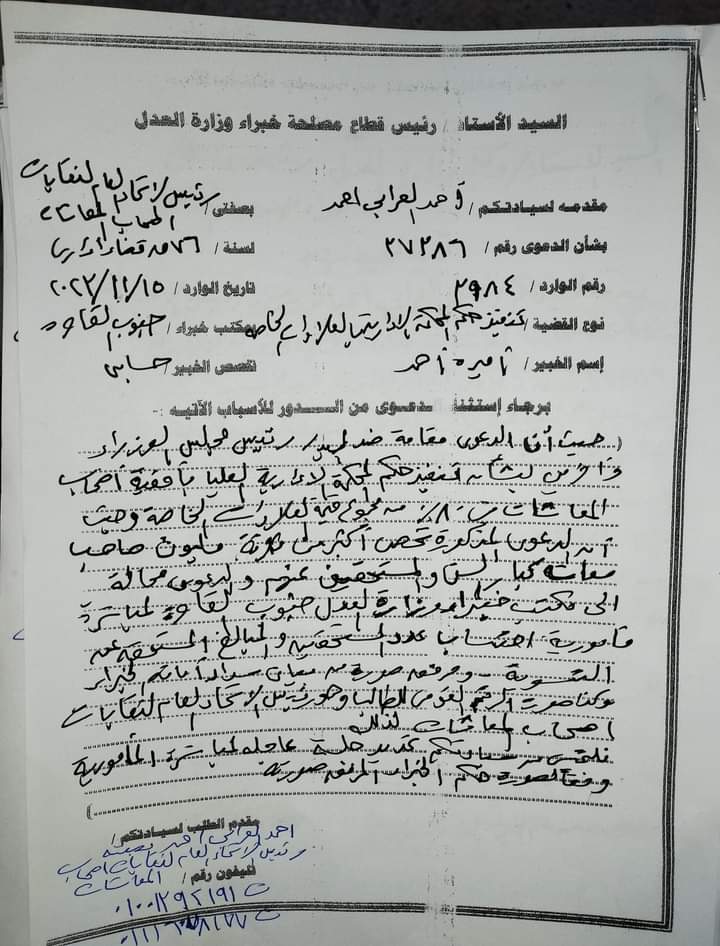 السيد الأستاذ / رئيس قطاع مصلحة خبراء وزارة العدل
مقدمه لسيادتكم / أحمد العرابي احمد بصفتى / رئيس الاتحاد العام لنقابات اصحاب المعاشات
بشأن الدعوى رقم / ٢٧٢٨٦ لسنة / ٧٦ قضاء اداري
رقم الوارد / ٢٩٨٤ تاريخ الوارد / ٢٠٢٣/١١/١٥
نوع القضية / تنفيذ حكم المحكمة الادارية العليا العلاوات الخاصة مكتب خبراء / جنوب القاهرة
إسم الخبير / أميرة أحمد تخصص الخبير / حسابى
برجاء إستثناء الدعوى من الدور للأسباب الآتيه :-
( حيث أن الدعوى مقامة ضد السيد / رئيس مجلس الوزراء
وآخرين بشأن تنفيذ حكم المحكمة الادارية العليا بأحقية أصحاب
المعاشات فى ٨٠٪ من مجموع قيمة العلاوات الخاصة وحيث
أن الدعوى المذكورة تخص أكثر من مليون صاحب
معاش كبار السن والمستحقين عنهم والدعوى محالة
الى مكتب خبراء وزارة العدل جنوب القاهرة لمباشرة
مأمورية احتساب عدد المستحقين والمبالغ المستحقة عن
التسوية - ومرفق صورة من سداد أمانة الخبراء
وكذا صورة الرقم القومى للطالب وهو رئيس الاتحاد العام لنقابات
اصحاب المعاشات لذلك
نلتمس من سيادتكم تحديد جلسة عاجله لمباشرة المأمورية
وفقا لصورة حكم الخبراء المرفق صورته
)
مقدم الطلب لسيادتكم /
احمد العرابي احمد بصفته
رئيس الاتحاد العام لنقابات اصحاب المعاشات
تليفون رقم /
ت ٠١٠٠١٢٩٢١٩١